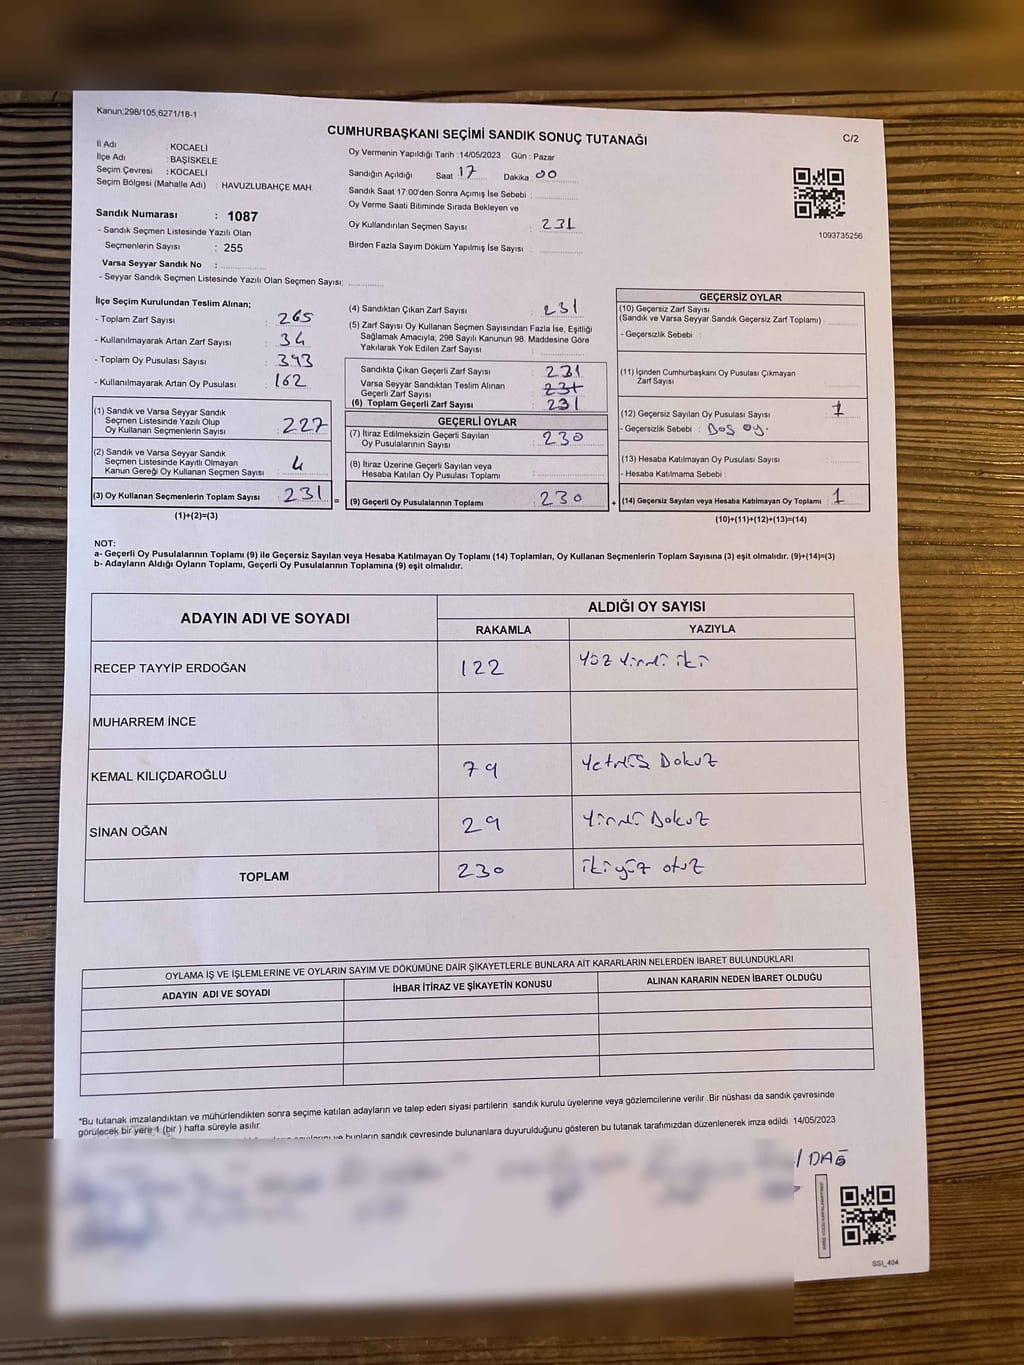 Kanun:298/105,6271/18-1
CUMHURBAŞKANI SEÇİMİ SANDIK SONUÇ TUTANAĞI
C/2
İl Adı : KOCAELİ
İlçe Adı : BAŞİSKELE
Seçim Çevresi : KOCAELİ
Seçim Bölgesi (Mahalle Adı) : HAVUZLUBAHÇE MAH.
Sandık Numarası : 1087
- Sandık Seçmen Listesinde Yazılı Olan
Seçmenlerin Sayısı : 255
Varsa Seyyar Sandık No :
- Seyyar Sandık Seçmen Listesinde Yazılı Olan Seçmen Sayısı:
Oy Vermenin Yapıldığı Tarih :14/05/2023 Gün : Pazar
Sandığın Açıldığı Saat 17 Dakika : 00
Sandık Saat 17:00'den Sonra Açımış İse Sebebi :
Oy Verme Saati Bitiminde Sırada Bekleyen ve
Oy Kullandırılan Seçmen Sayısı : 231
Birden Fazla Sayım Döküm Yapılmış İse Sayısı :
1093735256
İlçe Seçim Kurulundan Teslim Alınan;
- Toplam Zarf Sayısı : 265
- Kullanılmayarak Artan Zarf Sayısı : 34
- Toplam Oy Pusulası Sayısı : 393
- Kullanılmayarak Artan Oy Pusulası : 162
(1) Sandık ve Varsa Seyyar Sandık
Seçmen Listesinde Yazılı Olup
Oy Kullanan Seçmenlerin Sayısı : 227
(2) Sandık ve Varsa Seyyar Sandık
Seçmen Listesinde Kayıtlı Olmayan
Kanun Gereği Oy Kullanan Seçmen Sayısı : 4
(3) Oy Kullanan Seçmenlerin Toplam Sayısı : 231 =
(1)+(2)=(3)
(4) Sandıktan Çıkan Zarf Sayısı : 231
(5) Zarf Sayısı Oy Kullanan Seçmen Sayısından Fazla İse, Eşitliği
Sağlamak Amacıyla; 298 Sayılı Kanunun 98. Maddesine Göre
Yakılarak Yok Edilen Zarf Sayısı :
Sandıkta Çıkan Geçerli Zarf Sayısı : 231
Varsa Seyyar Sandıktan Teslim Alınan
Geçerli Zarf Sayısı : 231
(6) Toplam Geçerli Zarf Sayısı : 231
GEÇERLİ OYLAR
(7) İtiraz Edilmeksizin Geçerli Sayılan
Oy Pusulalarının Sayısı : 230
(8) İtiraz Üzerine Geçerli Sayılan veya
Hesaba Katılan Oy Pusulası Toplamı :
(9) Geçerli Oy Pusulalarının Toplamı : 230 +
GEÇERSİZ OYLAR
(10) Geçersiz Zarf Sayısı
(Sandık ve Varsa Seyyar Sandık Geçersiz Zarf Toplamı) :
- Geçersizlik Sebebi :
(11) İçinden Cumhurbaşkanı Oy Pusulası Çıkmayan
Zarf Sayısı :
(12) Geçersiz Sayılan Oy Pusulası Sayısı : 1
- Geçersizlik Sebebi : Boş oy.
(13) Hesaba Katılmayan Oy Pusulası Sayısı :
- Hesaba Katılmama Sebebi :
(14) Geçersiz Sayılan veya Hesaba Katılmayan Oy Toplamı : 1
(10)+(11)+(12)+(13)=(14)
NOT:
a- Geçerli Oy Pusulalarının Toplamı (9) ile Geçersiz Sayılan veya Hesaba Katılmayan Oy Toplamı (14) Toplamları, Oy Kullanan Seçmenlerin Toplam Sayısına (3) eşit olmalıdır. (9)+(14)=(3)
b- Adayların Aldığı Oyların Toplamı, Geçerli Oy Pusulalarının Toplamına (9) eşit olmalıdır.
ADAYIN ADI VE SOYADI
ALDIĞI OY SAYISI
RAKAMLA YAZIYLA
RECEP TAYYİP ERDOĞAN 122 Yüz Yirmi iki
MUHARREM İNCE
KEMAL KILIÇDAROĞLU 79 Yetmiş Dokuz
SİNAN OĞAN 29 Yirmi Dokuz
TOPLAM 230 iki yüz otuz
OYLAMA İŞ VE İŞLEMLERİNE VE OYLARIN SAYIM VE DÖKÜMÜNE DAİR ŞİKAYETLERLE BUNLARA AİT KARARLARIN NELERDEN İBARET BULUNDUKLARI
ADAYIN ADI VE SOYADI İHBAR İTİRAZ VE ŞİKAYETİN KONUSU ALINAN KARARIN NEDEN İBARET OLDUĞU
*Bu tutanak imzalandıktan ve mühürlendikten sonra seçime katılan adayların ve talep eden siyasi partilerin sandık kurulu üyelerine veya gözlemcilerine verilir. Bir nüshası da sandık çevresinde
görülecek bir yere 1 (bir ) hafta süreyle asılır.
ve bunların sandık çevresinde bulunanlara duyurulduğunu gösteren bu tutanak tarafımızdan düzenlenerek imza edildi. 14/05/2023
/ DAĞ
SSİ_404